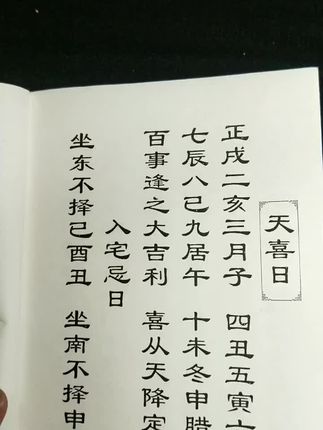 天喜日
正戌二亥三月子 四丑五寅
七辰八己九居午 十未冬申腊
百事逢之大吉利 喜从天降定
入宅忌日
坐东不择己酉丑 坐南不择申